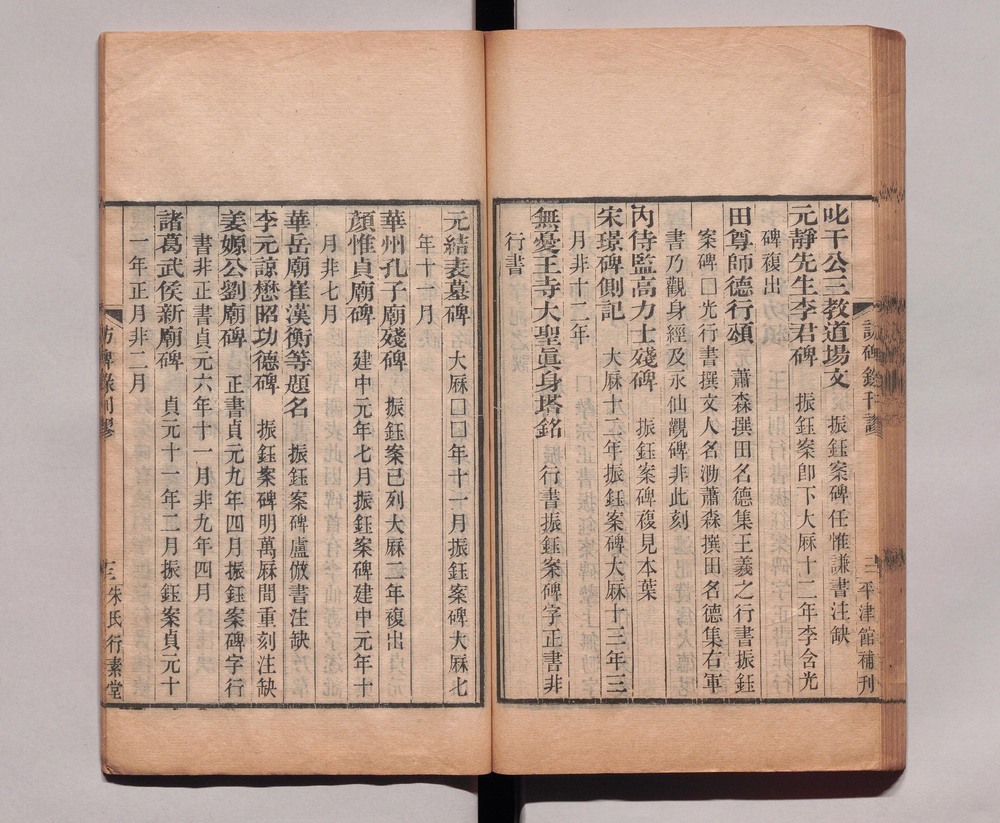 訪碑錄刊謬
三 平津館補刊
叱干公三教道場文 振鈺案碑任惟謙書注缺
元靜先生李君碑 振鈺案卽下大厤十二年李含光
碑複出
田尊師德行頌 蕭森撰田名德集王羲之行書振鈺
案碑□光行書撰文人名泐蕭森撰田名德集右軍
書乃觀身經及永仙觀碑非此刻
內侍監高力士殘碑 振鈺案碑複見本葉
宋璟碑側記 大厤十二年振鈺案碑大厤十三年三
月非十二年
無憂王寺大聖眞身塔銘 行書振鈺案碑字正書非
行書
元結表墓碑 大厤□□年十一月振鈺案碑大厤七
年十一月
華州孔子廟殘碑 振鈺案已列大厤三年複出
顏惟貞廟碑 建中元年七月振鈺案碑建中元年十
月非七月
華岳廟崔漢衡等題名 振鈺案碑盧倣書注缺
李元諒懋昭功德碑 振鈺案碑明萬厤間重刻注缺
姜嫄公劉廟碑 正書貞元九年四月振鈺案碑字行
書非正書貞元六年十一月非九年四月
諸葛武侯新廟碑 貞元十一年二月振鈺案貞元十
一年正月非二月
訪碑錄刊謬
三 朱氏行素堂